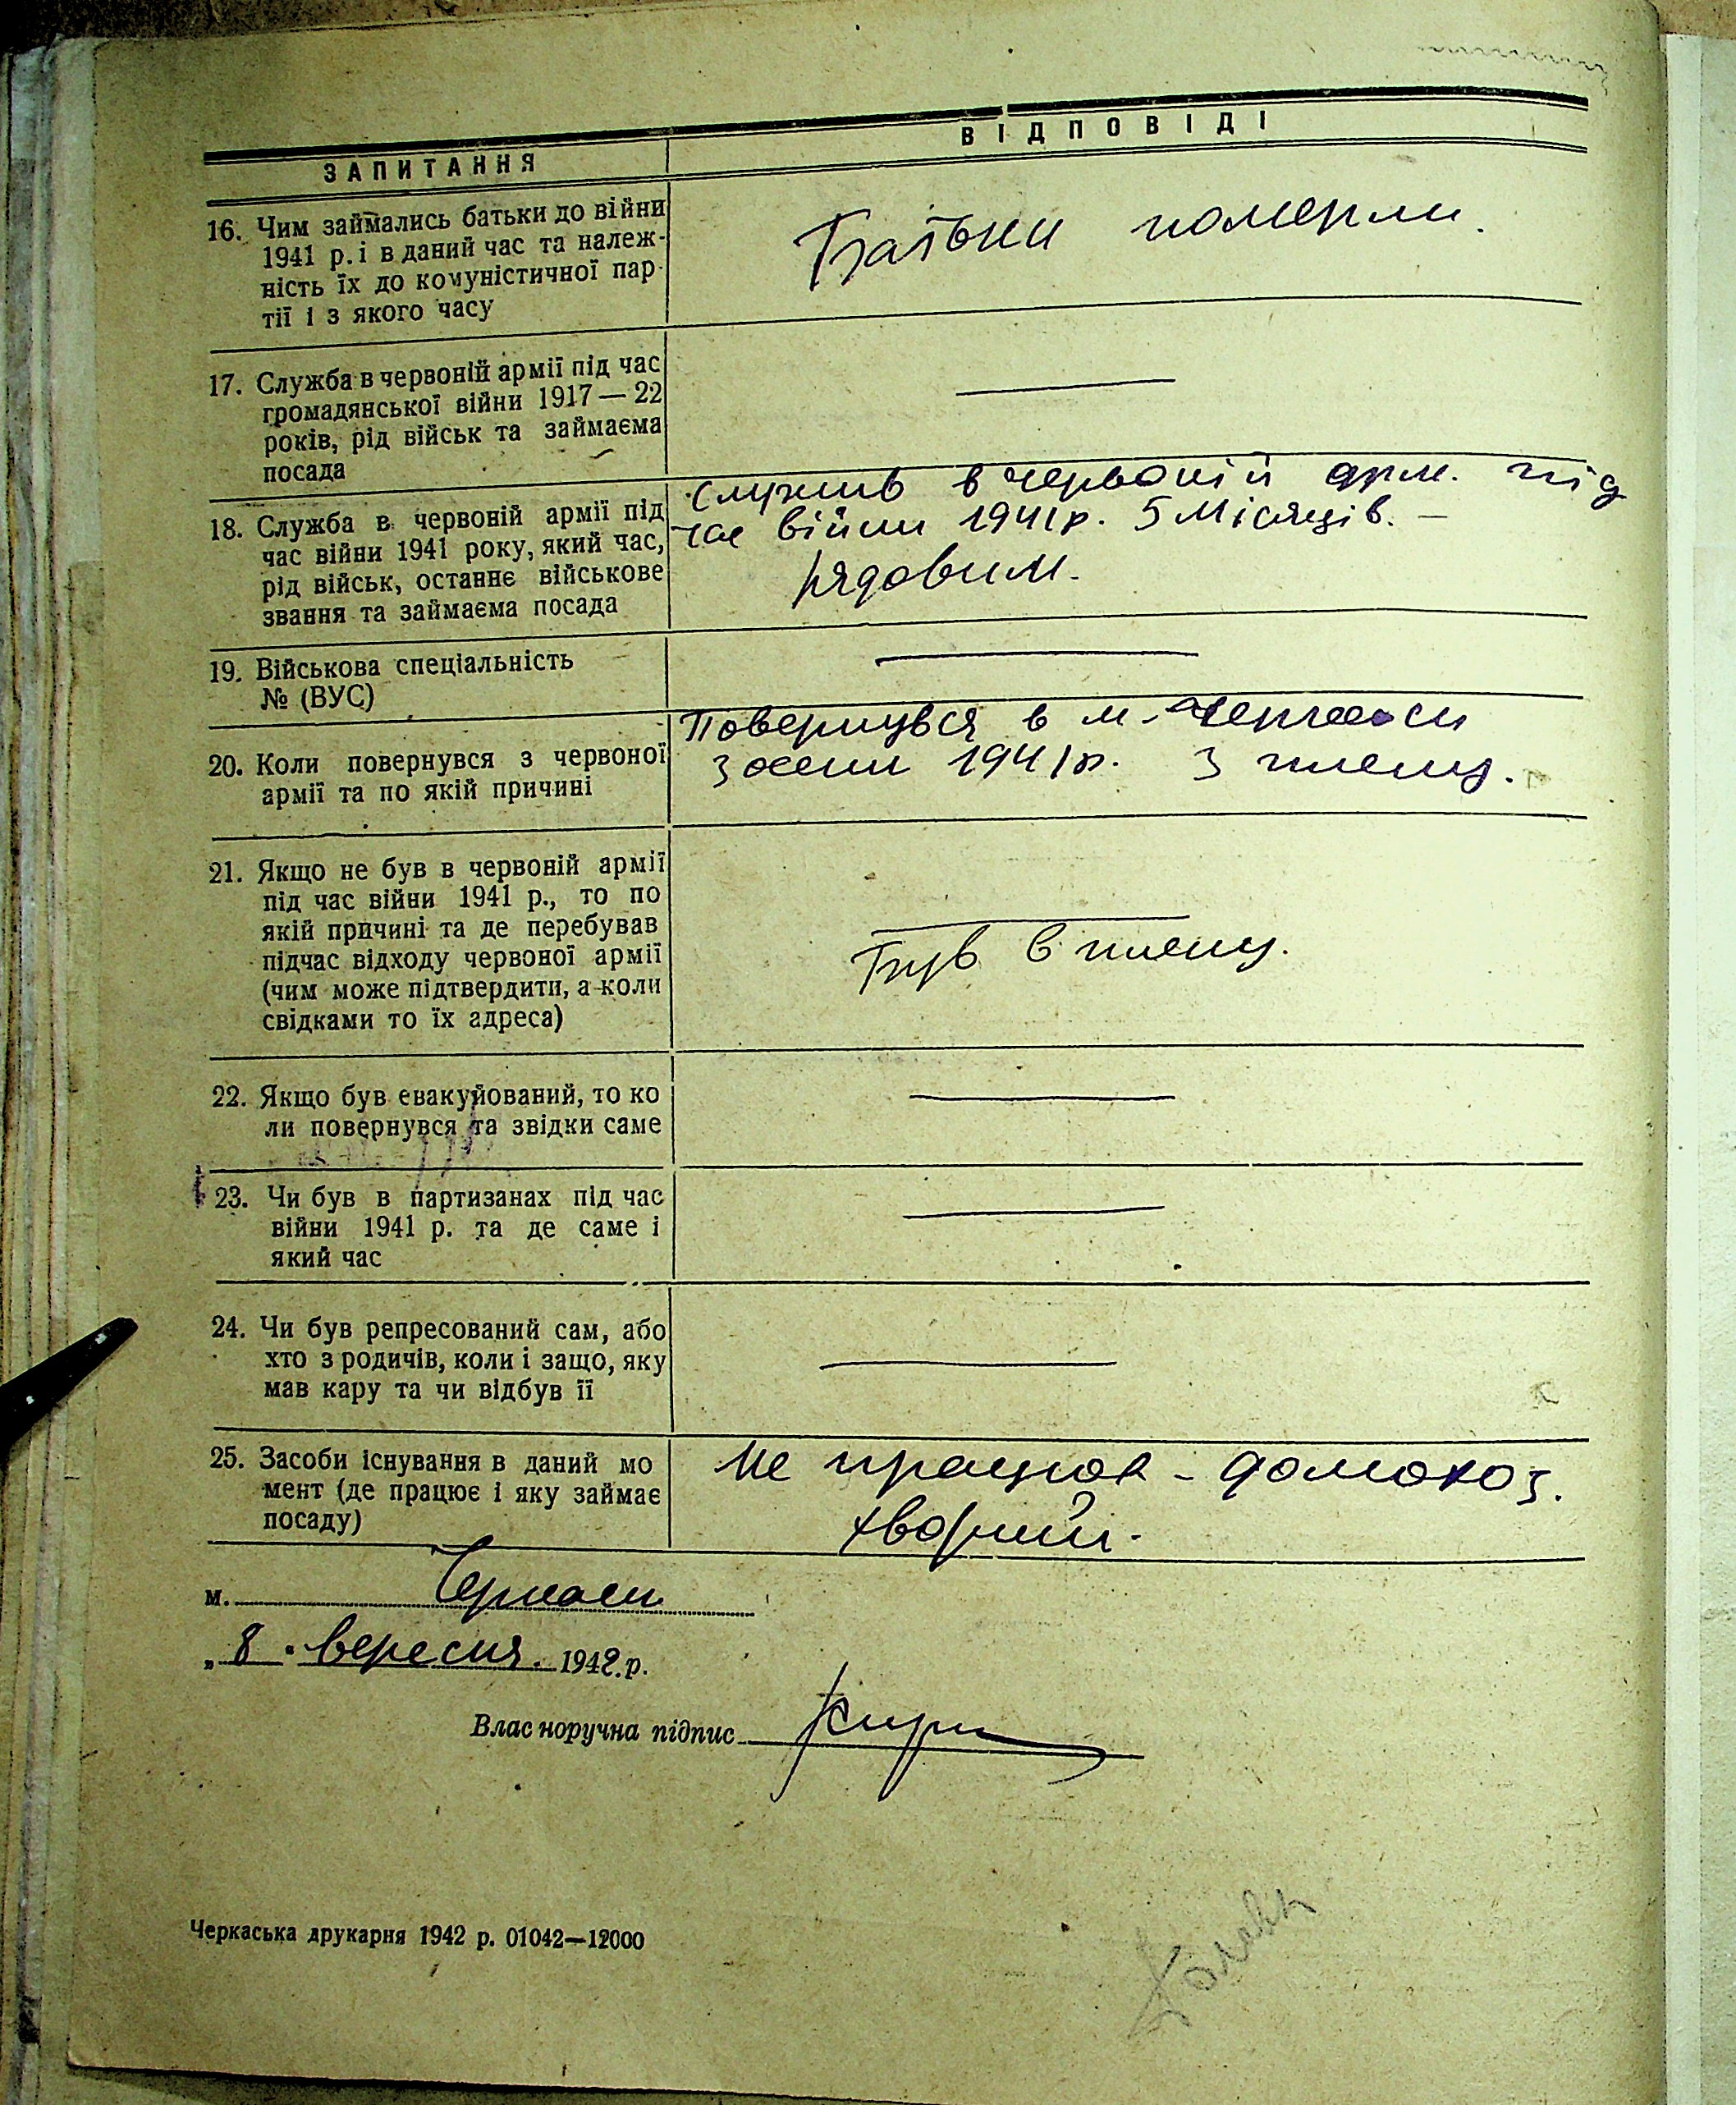 ЗАПИТАННЯ
ВІДПОВІДІ
16. Чим займались батьки до війни
1941 р. і в даний час та належ-
ність їх до комуністичної пар-
тії і з якого часу
Батьки померли.
17. Служба в червоній армії під час
громадянської війни 1917—22
років, рід військ та займаєма
посада
18. Служба в червоній армії під
час війни 1941 року, який час,
рід військ, останнє військове
звання та займаєма посада
Служив в червоній арм. під
час війни 1941 р. 5 місяців. —
рядовим.
19. Військова спеціальність
№ (ВУС)
20. Коли повернувся з червоної
армії та по якій причині
Повернувся в м. Черкаси
з осени 1941 р. з плену.
21. Якщо не був в червоній армії
під час війни 1941 р., то по
якій причині та де перебував
підчас відходу червоної армії
(чим може підтвердити, а коли
свідками то їх адреса)
Був в плену.
22. Якщо був евакуйований, то ко
ли повернувся та звідки саме
23. Чи був в партизанах під час
війни 1941 р. та де саме і
який час
24. Чи був репресований сам, або
хто з родичів, коли і защо, яку
мав кару та чи відбув її
25. Засоби існування в даний мо
мент (де працює і яку займає
посаду)
Не працюв - домохоз.
хворий.
м. Черкаси
„8" вересня. 1942.р.
Власноручна підпис
Черкаська друкарня 1942 р. 01042—12000